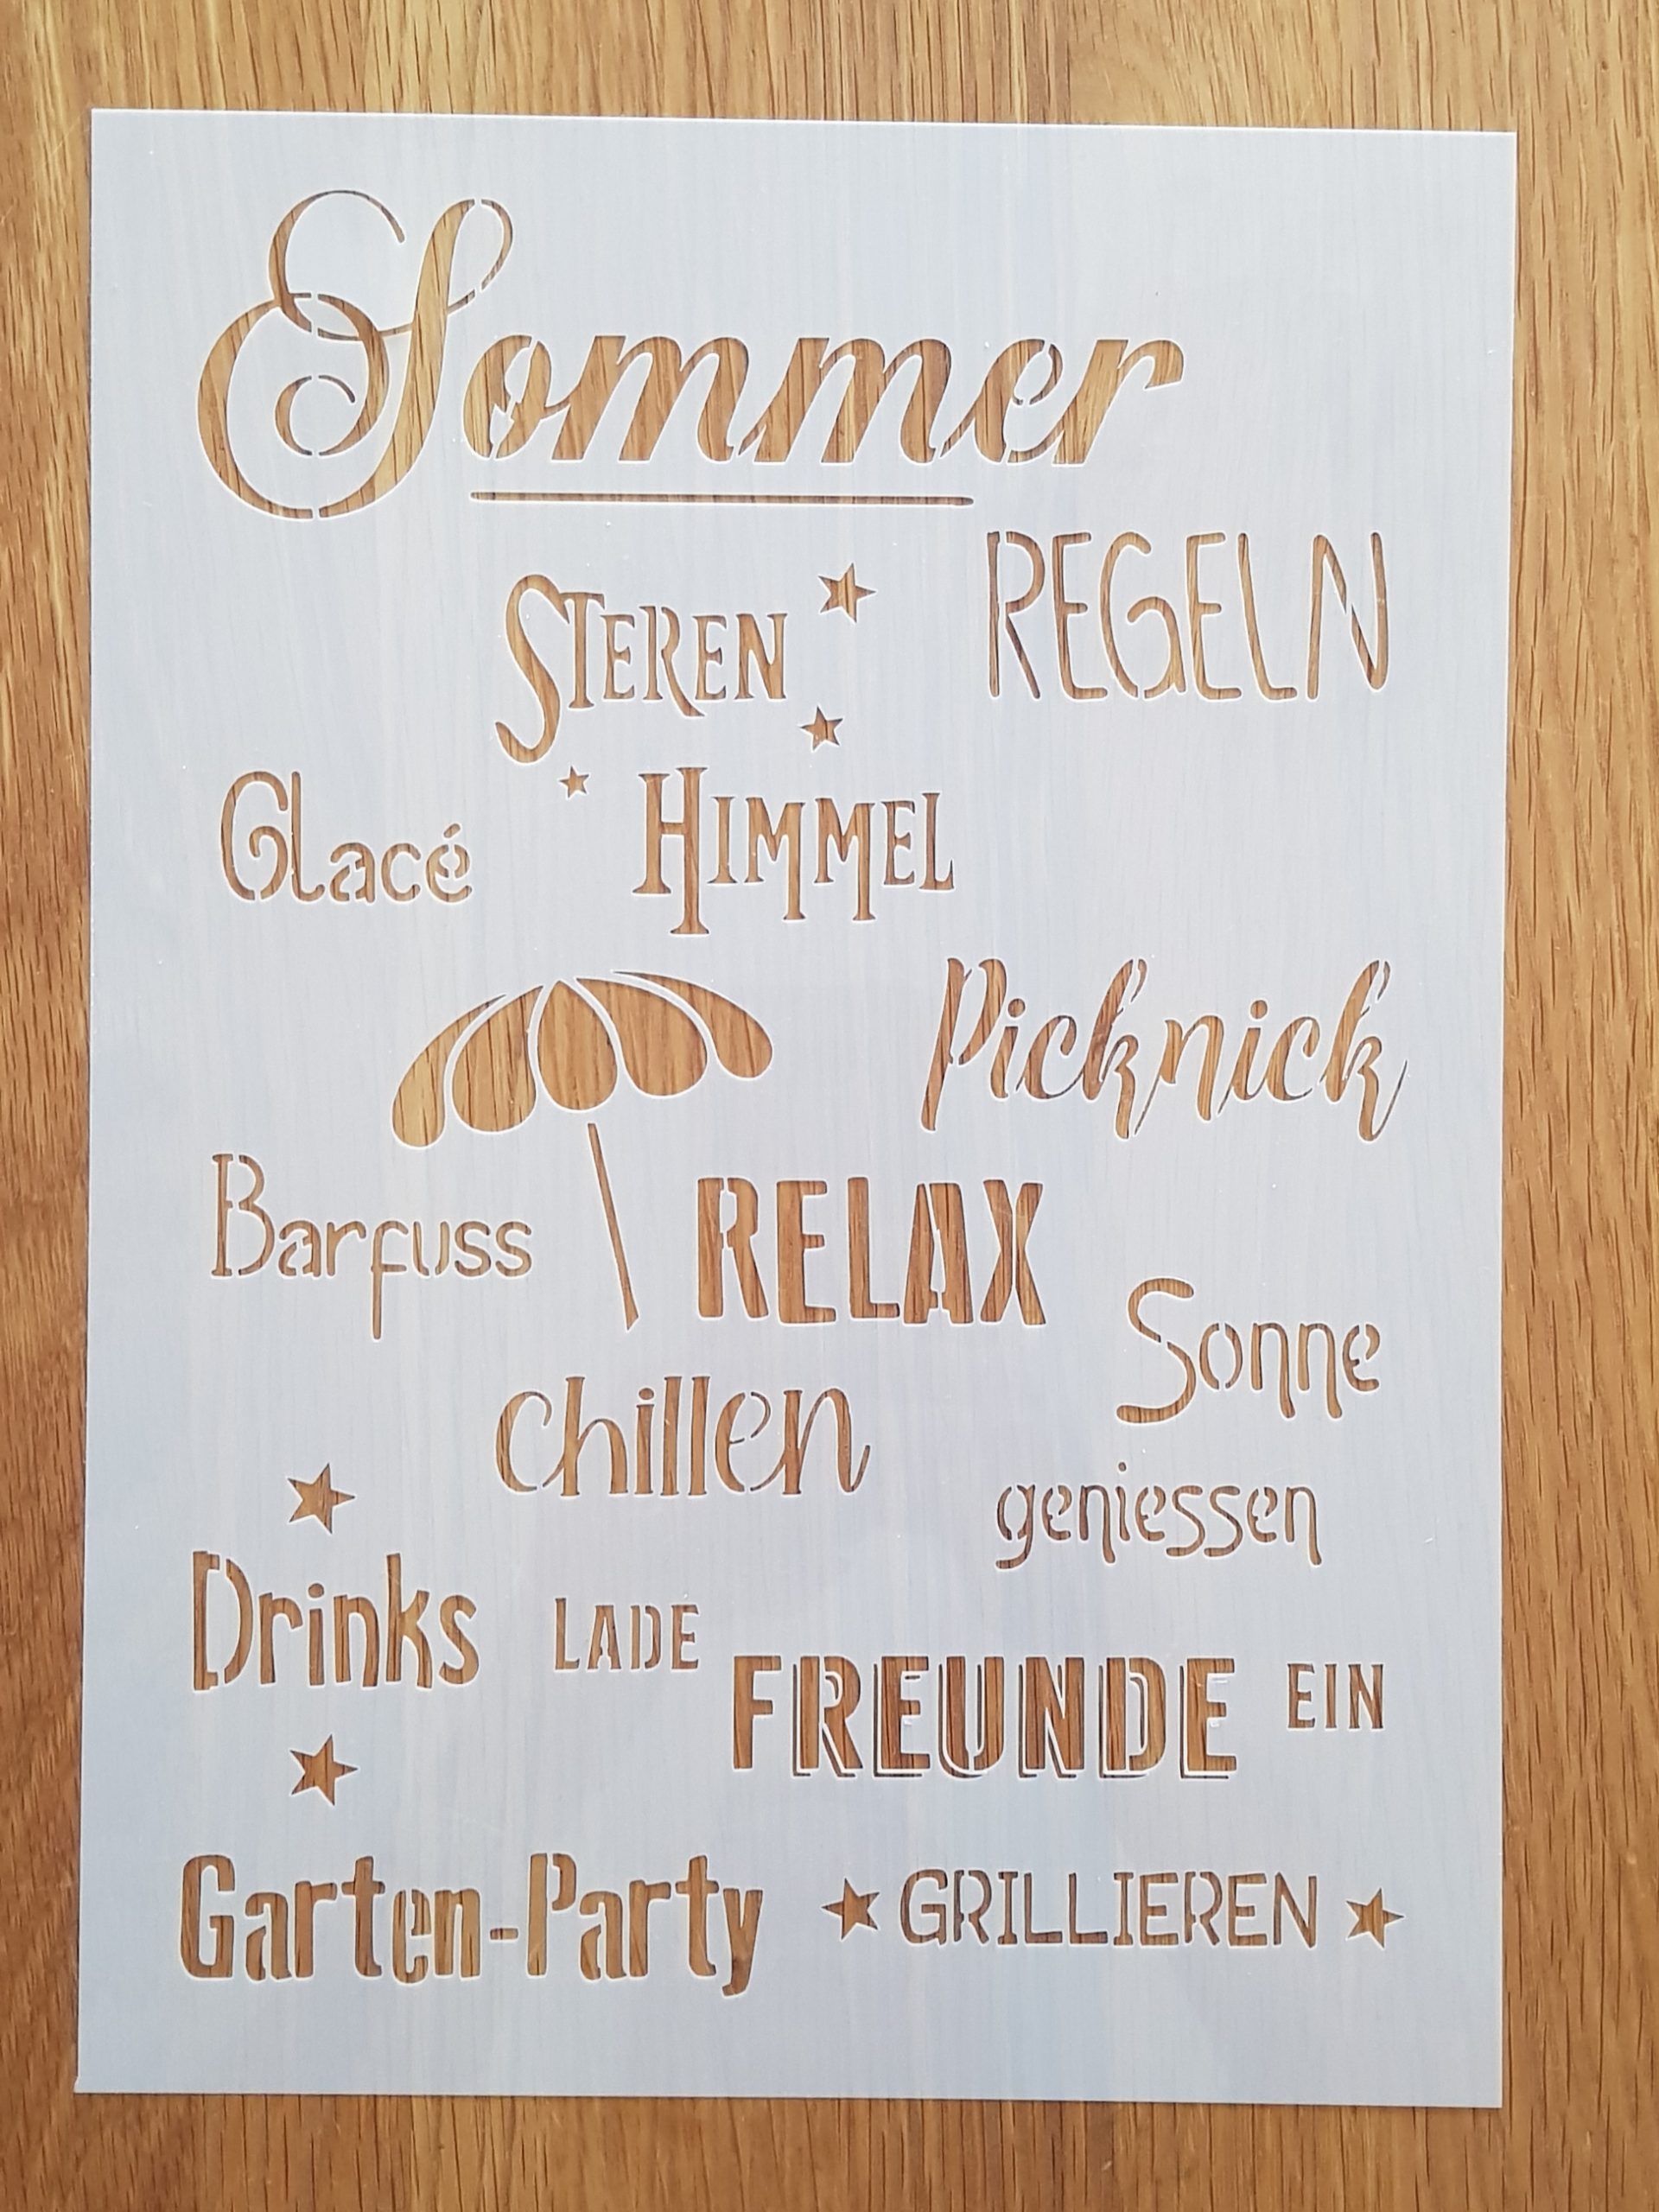 Sommer
REGELN
STEREN
HIMMEL
Glacé
Picknick
Barfuss
RELAX
Sonne
geniessen
chillen
Drinks
LADE
FREUNDE EIN
Garten-Party
GRILLIEREN